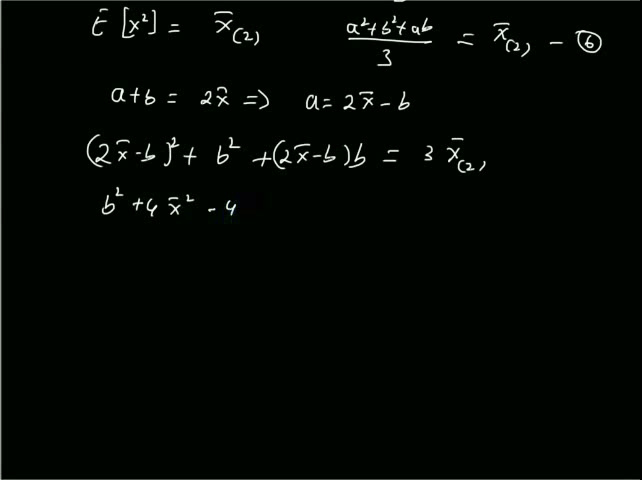 E [x²] = x̄₍₂₎ (a²+b²+ab)/3 = x̄₍₂₎ – ⑥
a+b = 2x̄ => a = 2x̄ – b
(2x̄ - b)² + b² + (2x̄ - b)b = 3 x̄₍₂₎
b² + 4 x̄² - 4